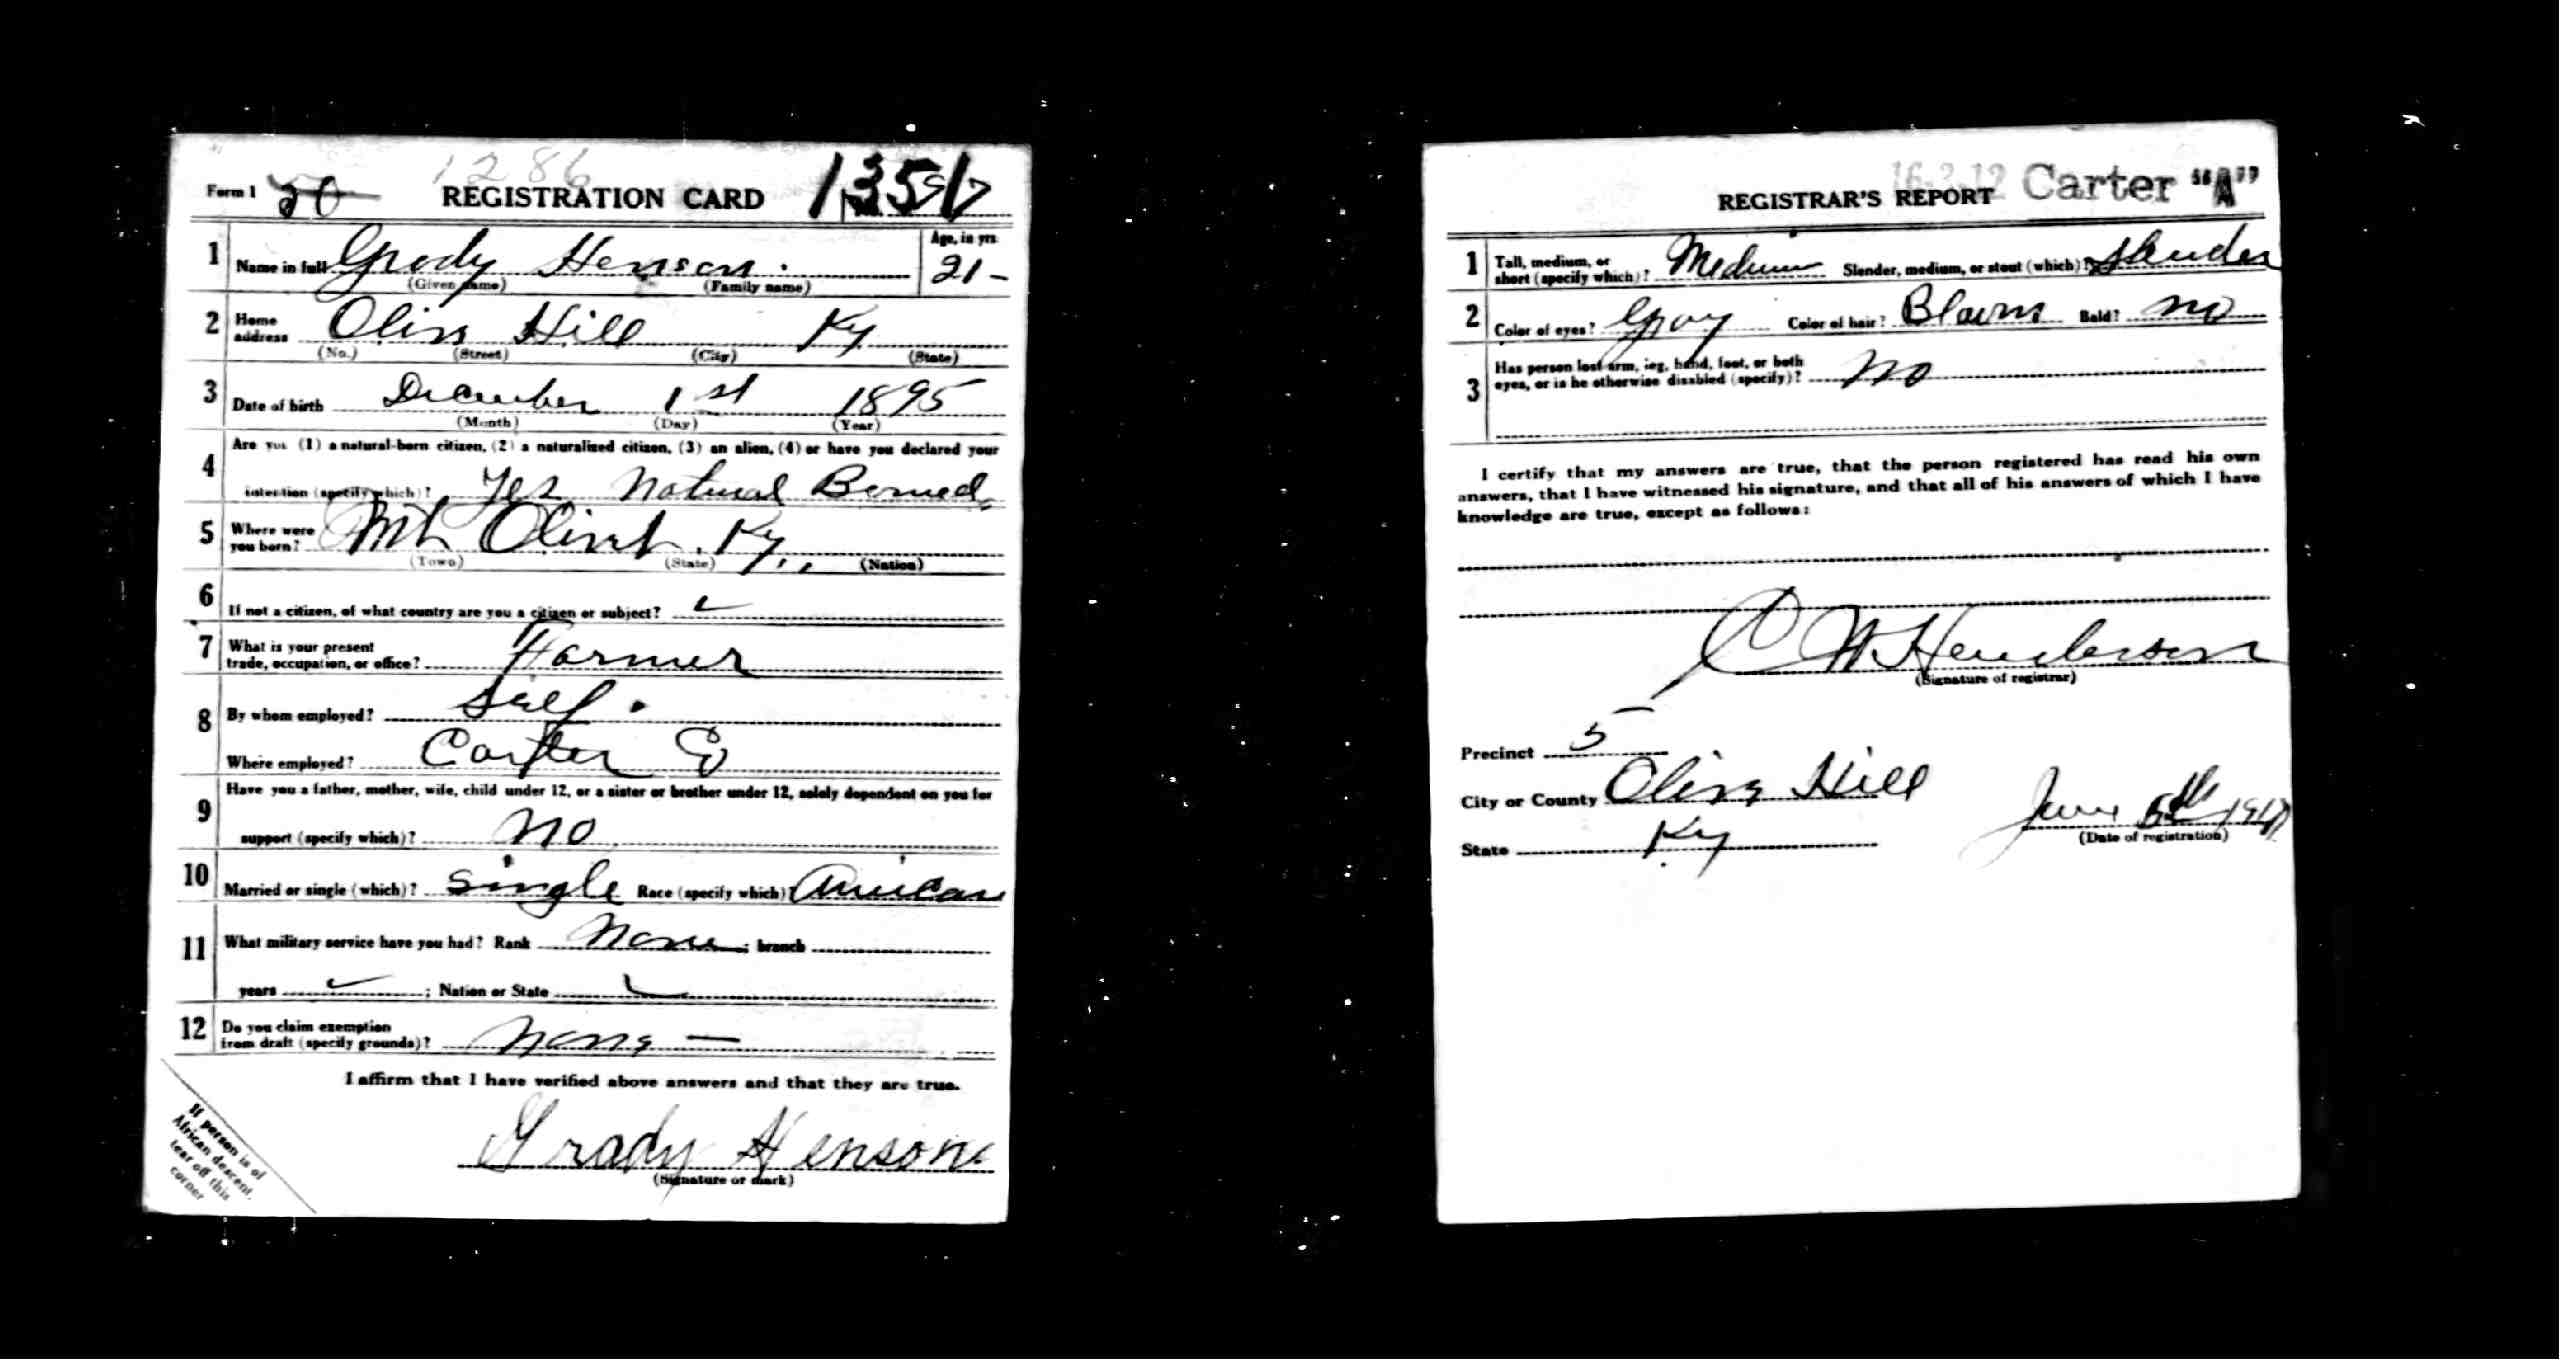 1286
Form 1 50 REGISTRATION CARD 135
1 Name in full Grady Henson. Age, in yrs 21 -
(Given name) (Family name)
2 Home address Olive Hill Ky
(No.) (Street) (City) (State)
3 Date of birth December 1st 1895
(Month) (Day) (Year)
4 Are you (1) a natural-born citizen, (2) a naturalized citizen, (3) an alien, (4) or have you declared your
intention (specify which)? Yes Natural Borned
5 Where were you born? Mt Olivet, Ky.
(Town) (State) (Nation)
6 If not a citizen, of what country are you a citizen or subject?
7 What is your present trade, occupation, or office? Farmer
8 By whom employed? Self.
Where employed? Carter Co
9 Have you a father, mother, wife, child under 12, or a sister or brother under 12, solely dependent on you for
support (specify which)? No
10 Married or single (which)? Single Race (specify which) American
11 What military service have you had? Rank None; branch
years ; Nation or State
12 Do you claim exemption from draft (specify grounds)? None -
I affirm that I have verified above answers and that they are true.
Grady Henson
(Signature or mark)
If person is of
African descent,
tear off this
corner
16-2-12 Carter "A"
REGISTRAR'S REPORT
1 Tall, medium, or short (specify which)? Medium Slender, medium, or stout (which)? Slender
2 Color of eyes? Gray Color of hair? Brown Bald? No
3 Has person lost arm, leg, hand, foot, or both
eyes, or is he otherwise disabled (specify)? No
I certify that my answers are true, that the person registered has read his own
answers, that I have witnessed his signature, and that all of his answers of which I have
knowledge are true, except as follows:
C W Henderson
(Signature of registrar)
Precinct 5
City or County Olive Hill June 5th 1917
State Ky (Date of registration)